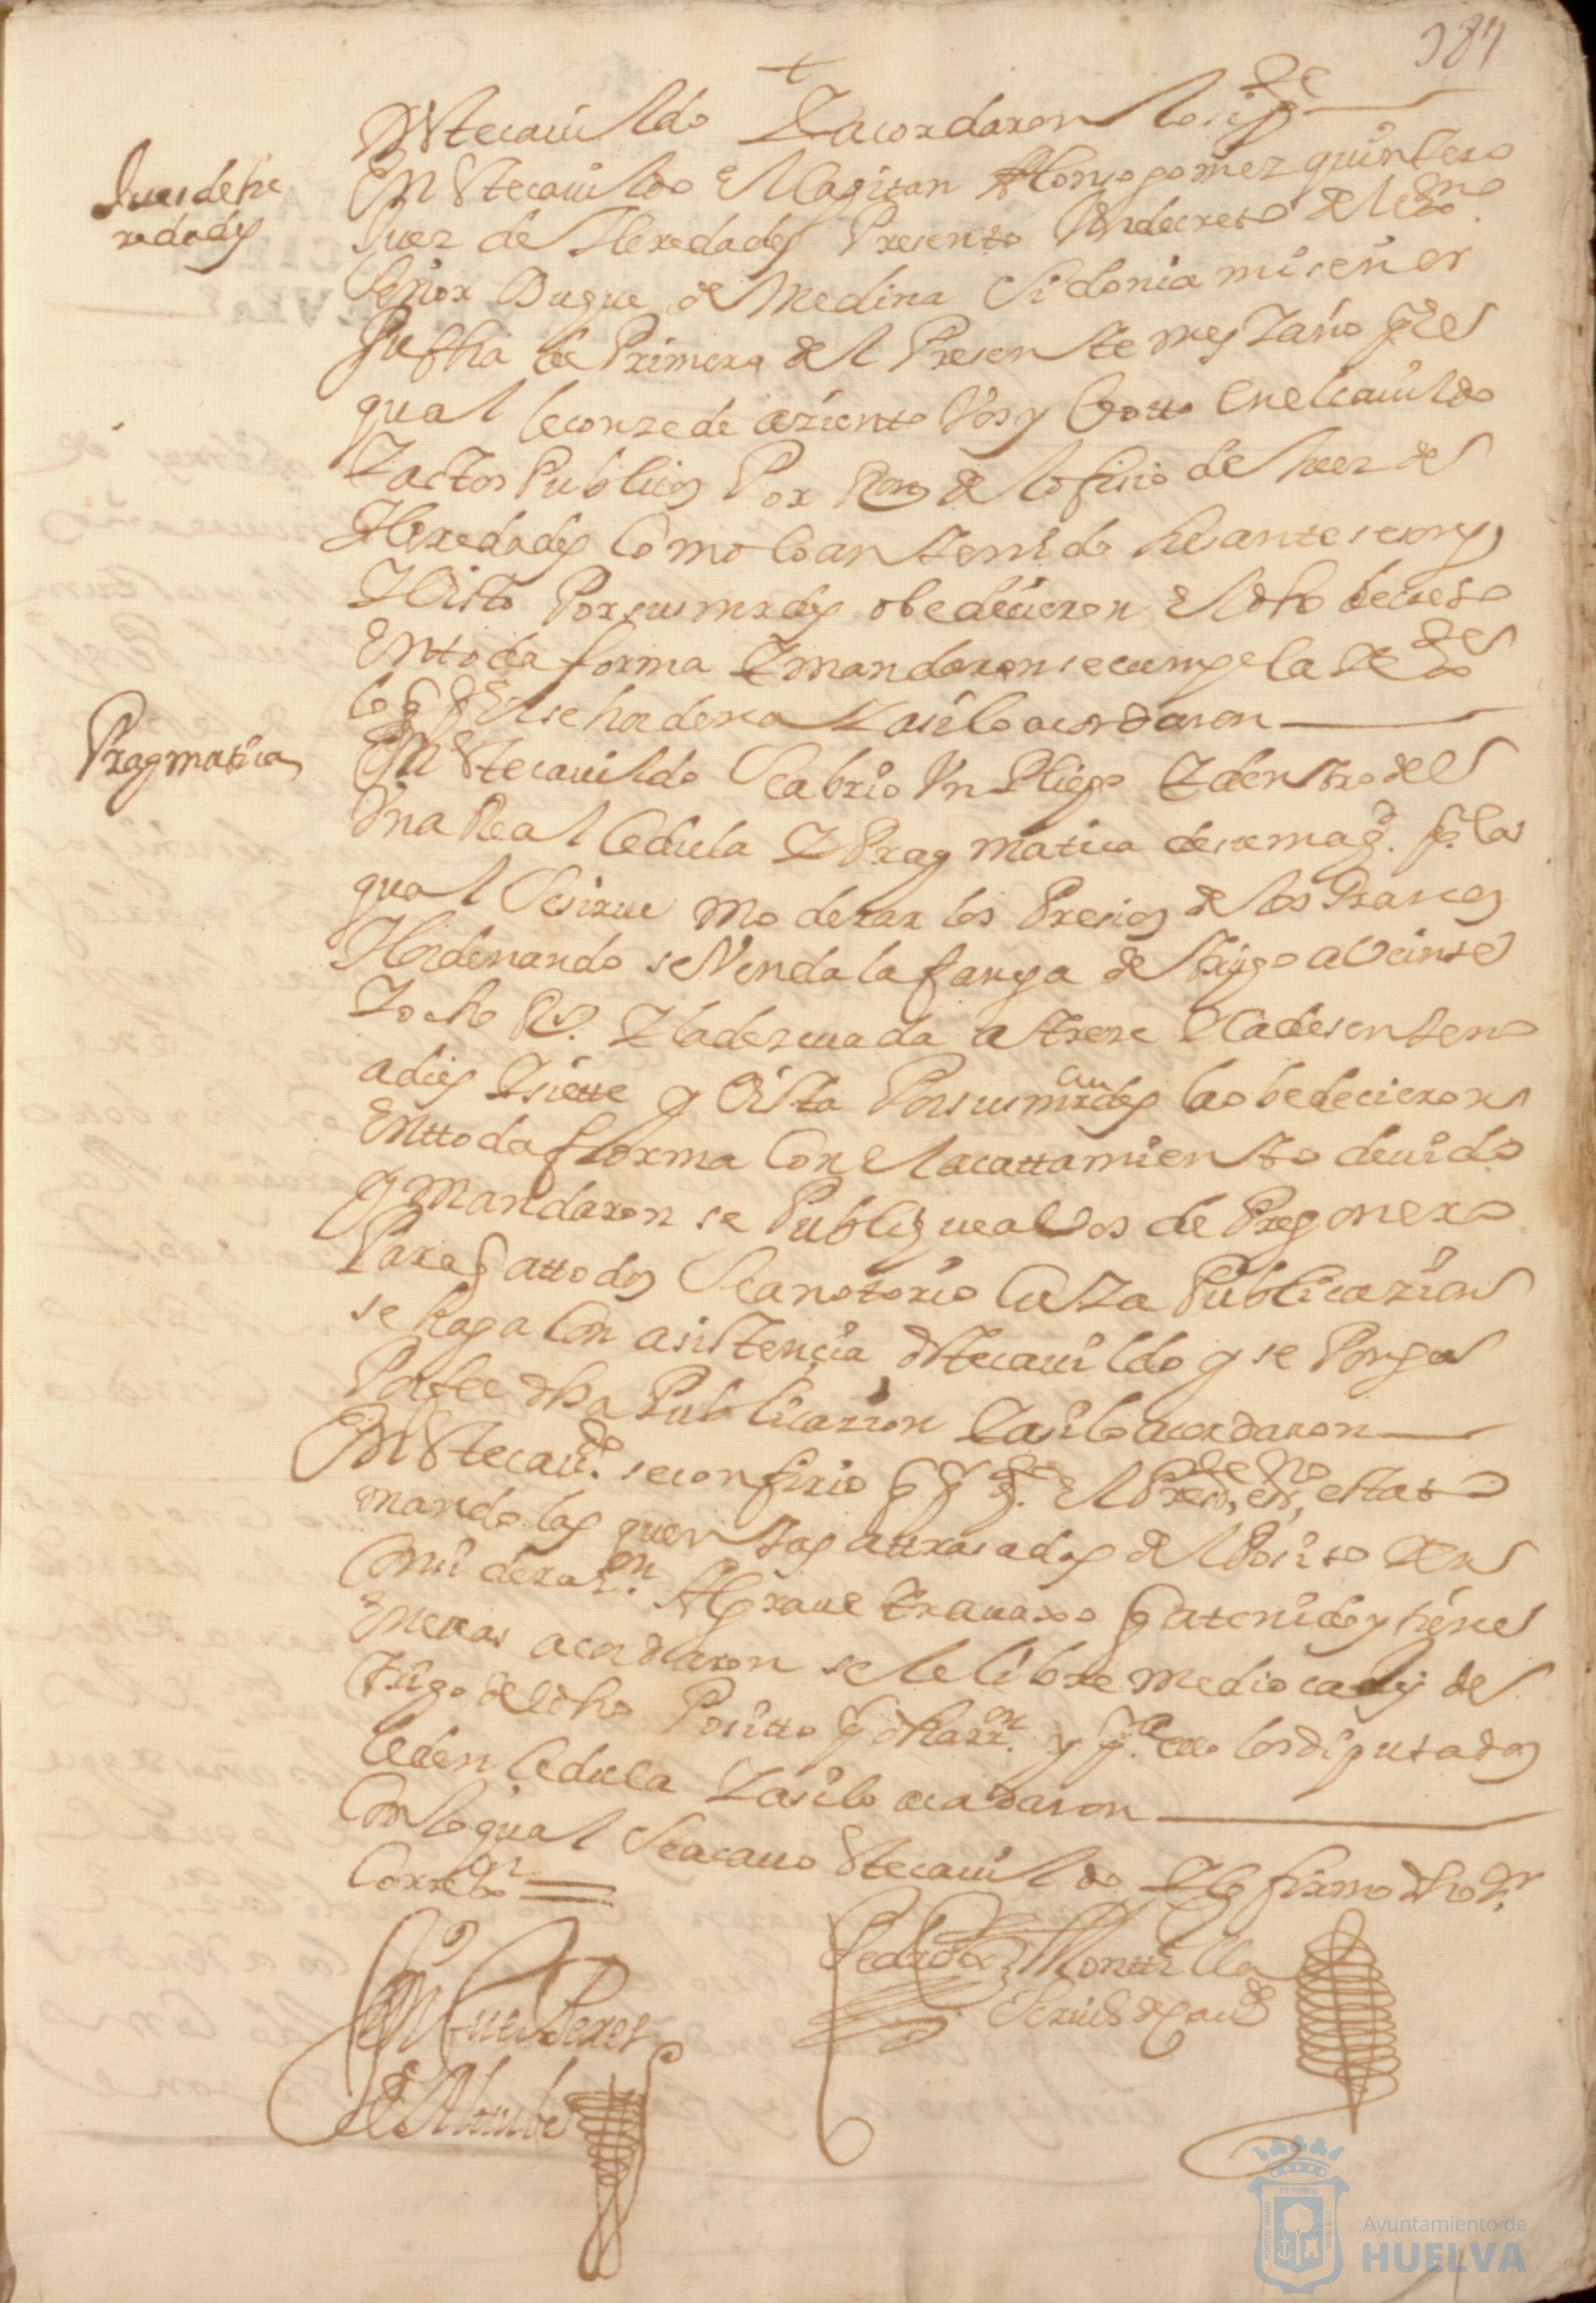 387
+
Estecauildo Yacordaron losigte
Juesdehe
redades
En Estecauildo el Capitan Alonsogomez quintero
Juez de Heredades Presento Undecreto del exmo
Señor Duque de Medina Sidonia miseñor
Su fha de Primero del Presente mes Yaño pr el
qual leconzede aziento Vos y Votto enelcauildo
Yactos Publicos Por Razon del ofisio de Juez de
Heredades Como loan tenido susantesesores
YVisto Porsusmrdes obedecieron el dho decreto
Entoda forma Ymandaron secumpla
lo q pr el se hordena Yasilo acordaron
Pragmatica
En Estecauildo Seabrio Un Pliego Ydentro del
Una Real Cedula YPragmatica desumagd. pr la
qual Sesirue moderar los Presios de los Granos
Hordenando seVenda lafanga de trigo aVeinte
Yocho Rs. Yladezeuada a treze Yladesenteno
adies Ysiette y Vista Porsusmrdes laobedecieron
Enttoda forma Con elacattamiento deuido
y mandaron se Publique aVos de Pregonero
Para q attodos Seanotorio CuYa Publicazion
se haga Con asistencia destecauildo y se Ponga
Porfee dha Publicazion Yasilo acordaron
En Estecaudo. seconfirio q pr qe. el Presente esno estato
mando las quentas attrasadas del Posito Yen
Consideraon. Algraue trauaxo q atenido y tiene
Enellas acordaron se le libre medio cahis de
trigo deldho Positto pr dha rason. y pa ello losdiputados
leden Cedula Yasilo acordaron
Con loqual Seacauo Estecauildo Ylo firmo dho Sr.
Corredor
Pedro de Monttilla
Scriuo de Cauo
Manuel Perez
Ayuntamiento de
HUELVA